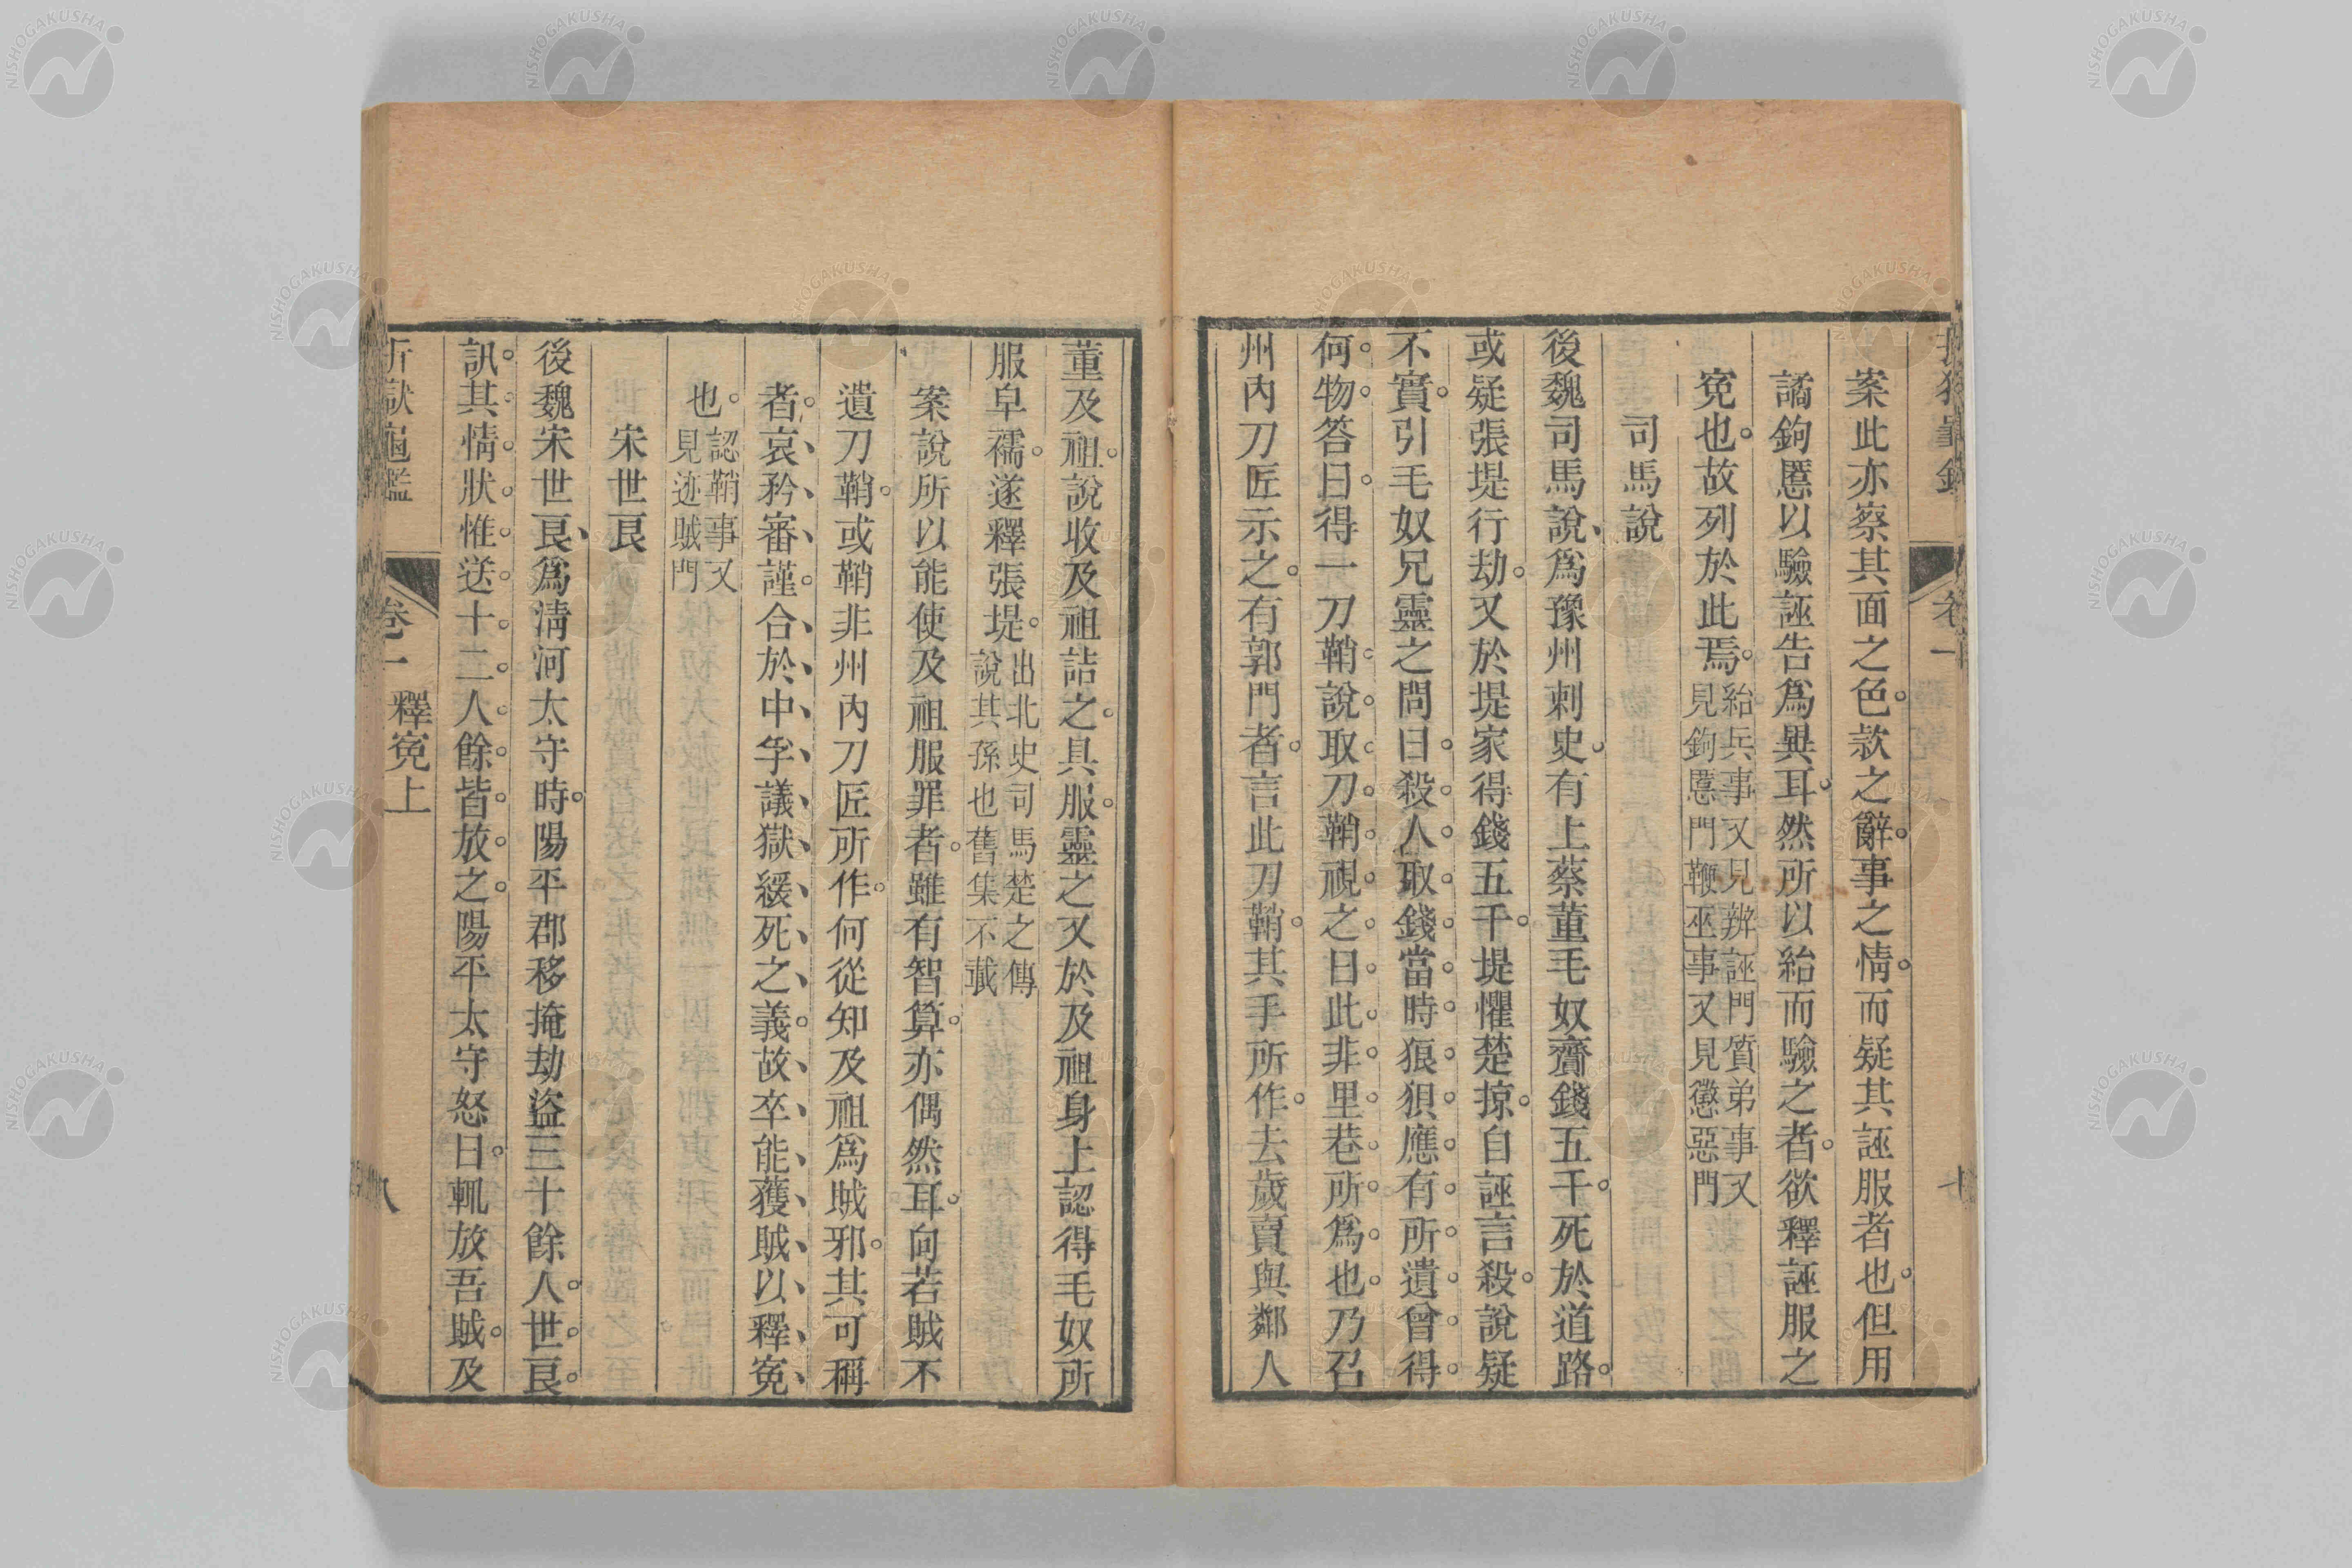 案此亦察其面之色款之辭事之情而疑其誣服者也但用
譎鉤慝以驗誣告爲異耳然所以紿而驗之者欲釋誣服之
寃也故列於此焉紿兵事又見辨誣門質弟事又見鉤慝門鞭巫事又見懲惡門
司馬說
後魏司馬說爲豫州刺史有上蔡董毛奴齎錢五千死於道路
或疑張堤行劫又於堤家得錢五千堤懼楚掠自誣言殺說疑
不實引毛奴兄靈之問曰殺人取錢當時狼狽應有所遺曾得
何物答曰得一刀鞘說取刀鞘視之曰此非里巷所爲也乃召
州內刀匠示之有郭門者言此刀鞘其手所作去歲賣與鄰人
董及祖說收及祖詰之具服靈之又於及祖身上認得毛奴所
服皁襦遂釋張堤出北史司馬楚之傳說其孫也舊集不載
案說所以能使及祖服罪者雖有智算亦偶然耳向若賊不
遺刀鞘或鞘非州內刀匠所作何從知及祖爲賊邪其可稱
者哀矜審謹合於中孚議獄緩死之義故卒能獲賊以釋寃
也認鞘事又見迹賊門
宋世艮
後魏宋世艮爲清河太守時陽平郡移掩劫盜三十餘人世艮
訊其情狀惟送十二人餘皆放之陽平太守怒曰輒放吾賊及
折獄龜鑑 卷一 釋寃上 八
NISHOGAKUSHA